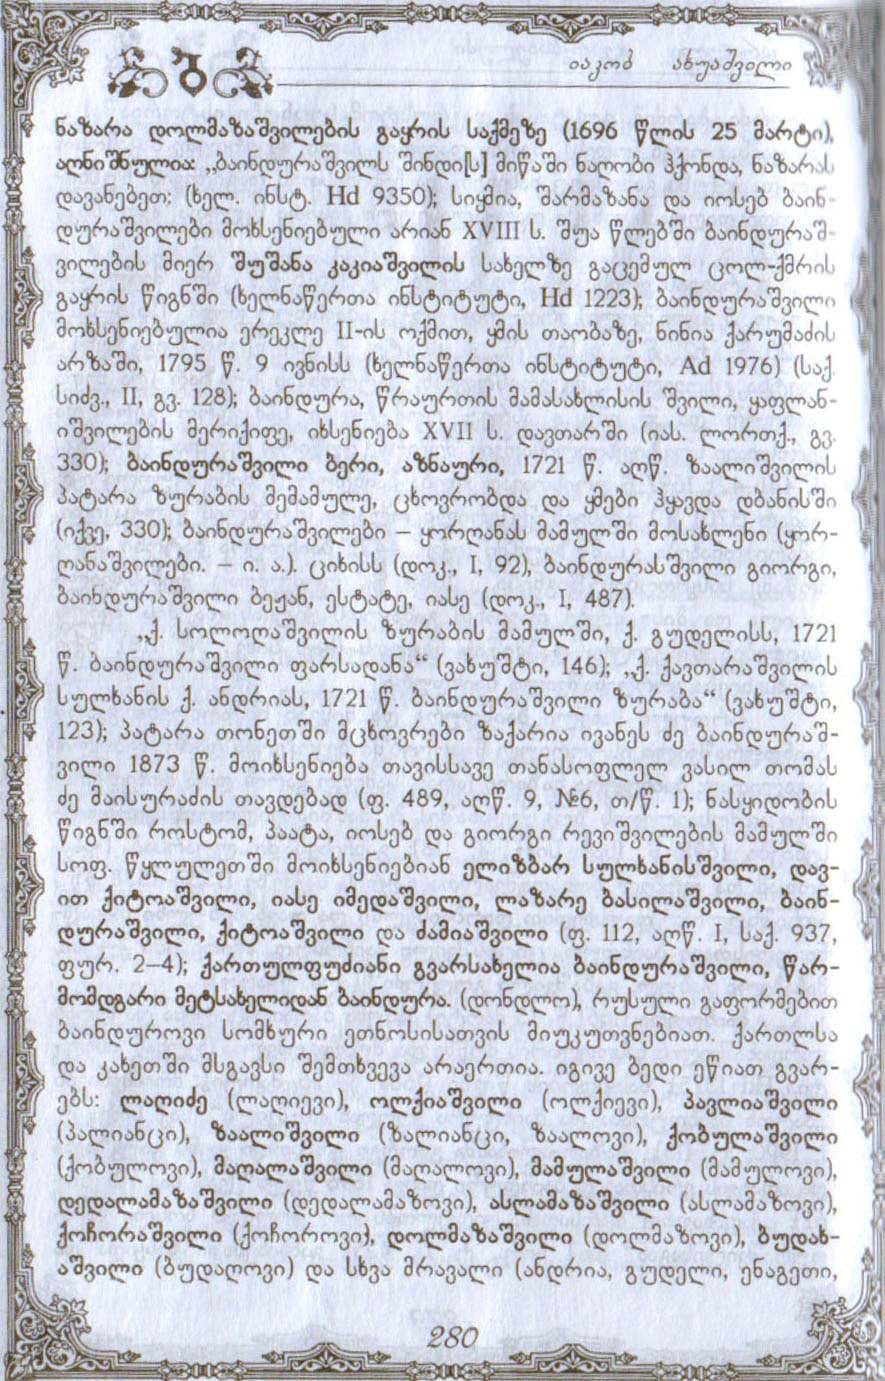 იაკობ ახუაშვილი
ნაზარა დოლმაზაშვილების გაყრის საქმეზე (1696 წლის 25 მარტი),
აღნიშნულია: „ბაინდურაშვილს შინდი[ს] მიწაში ნაღობი ჰქონდა, ნაზარას
დავანებეთ: (ხელ. ინსტ. Hd 9350); სიყმია, შარმაზანა და იოსებ ბაინ-
დურაშვილები მოხსენიებული არიან XVIII ს. შუა წლებში ბაინდურაშ-
ვილების მიერ შუშანა კაკიაშვილის სახელზე გაცემულ ცოლ-ქმრის
გაყრის წიგნში (ხელნაწერთა ინსტიტუტი, Hd 1223); ბაინდურაშვილი
მოხსენიებულია ერეკლე II-ის ოქმით, ყმის თაობაზე, ნინია ქარუმაძის
არზაში, 1795 წ. 9 ივნისს (ხელნაწერთა ინსტიტუტი, Ad 1976) (საქ.
სიძვ., II, გვ. 128); ბაინდურა, წრაურთის მამასახლისის შვილი, ყაფლან-
იშვილების მერიქიფე, იხსენიება XVII ს. დავთარში (იას. ლორთქ., გვ.
330); ბაინდურაშვილი ბერი, აზნაური, 1721 წ. აღწ. ზაალიშვილის
პატარა ზურაბის მემამულე, ცხოვრობდა და ყმები ჰყავდა დბანისში
(იქვე, 330); ბაინდურაშვილები – ყორღანას მამულში მოსახლენი (ყორ-
ღანაშვილები. – ი. ა.). ციხისს (დოკ., I, 92), ბაინდურასშვილი გიორგი,
ბაინდურაშვილი ბეჟან, ესტატე, იასე (დოკ., I, 487).
„ქ. სოლოღაშვილის ზურაბის მამულში, ქ. გუდელისს, 1721
წ. ბაინდურაშვილი ფარსადანა“ (ვახუშტი, 146); „ქ. ქავთარაშვილის
სულხანის ქ. ანდრიას, 1721 წ. ბაინდურაშვილი ზურაბა“ (ვახუშტი,
123); პატარა თონეთში მცხოვრები ზაქარია ივანეს ძე ბაინდურაშ-
ვილი 1873 წ. მოიხსენიება თავისსავე თანასოფლელ ვასილ თომას
ძე მაისურაძის თავდებად (ფ. 489, აღწ. 9, №6, თ/წ. 1); ნასყიდობის
წიგნში როსტომ, პაატა, იოსებ და გიორგი რევიშვილების მამულში
სოფ. წყლულეთში მოიხსენიებიან ელიზბარ სულხანისშვილი, დავ-
ით ქიტოაშვილი, იასე იმედაშვილი, ლაზარე ბასილაშვილი, ბაინ-
დურაშვილი, ქიტოაშვილი და ძამიაშვილი (ფ. 112, აღწ. I, საქ. 937,
ფურ. 2–4); ქართულფუძიანი გვარსახელია ბაინდურაშვილი, წარ-
მომდგარი მეტსახელიდან ბაინდურა. (დონდლო), რუსული გაფორმებით
ბაინდუროვი სომხური ეთნოსისათვის მიუკუთვნებიათ. ქართლსა
და კახეთში მსგავსი შემთხვევა არაერთია. იგივე ბედი ეწიათ გვარ-
ებს: ლაღიძე (ლაღიევი), ოლქიაშვილი (ოლქიევი), პავლიაშვილი
(პალიანცი), ზაალიშვილი (ზალიანცი, ზაალოვი), ქობულაშვილი
(ქობულოვი), მაღალაშვილი (მაღალოვი), მამულაშვილი (მამულოვი),
დედალამაზაშვილი (დედალამაზოვი), ასლამაზაშვილი (ასლამაზოვი),
ქოჩორაშვილი (ქოჩოროვი), დოლმაზაშვილი (დოლმაზოვი), ბუდახ-
აშვილი (ბუდაღოვი) და სხვა მრავალი (ანდრია, გუდელი, ენაგეთი,
280